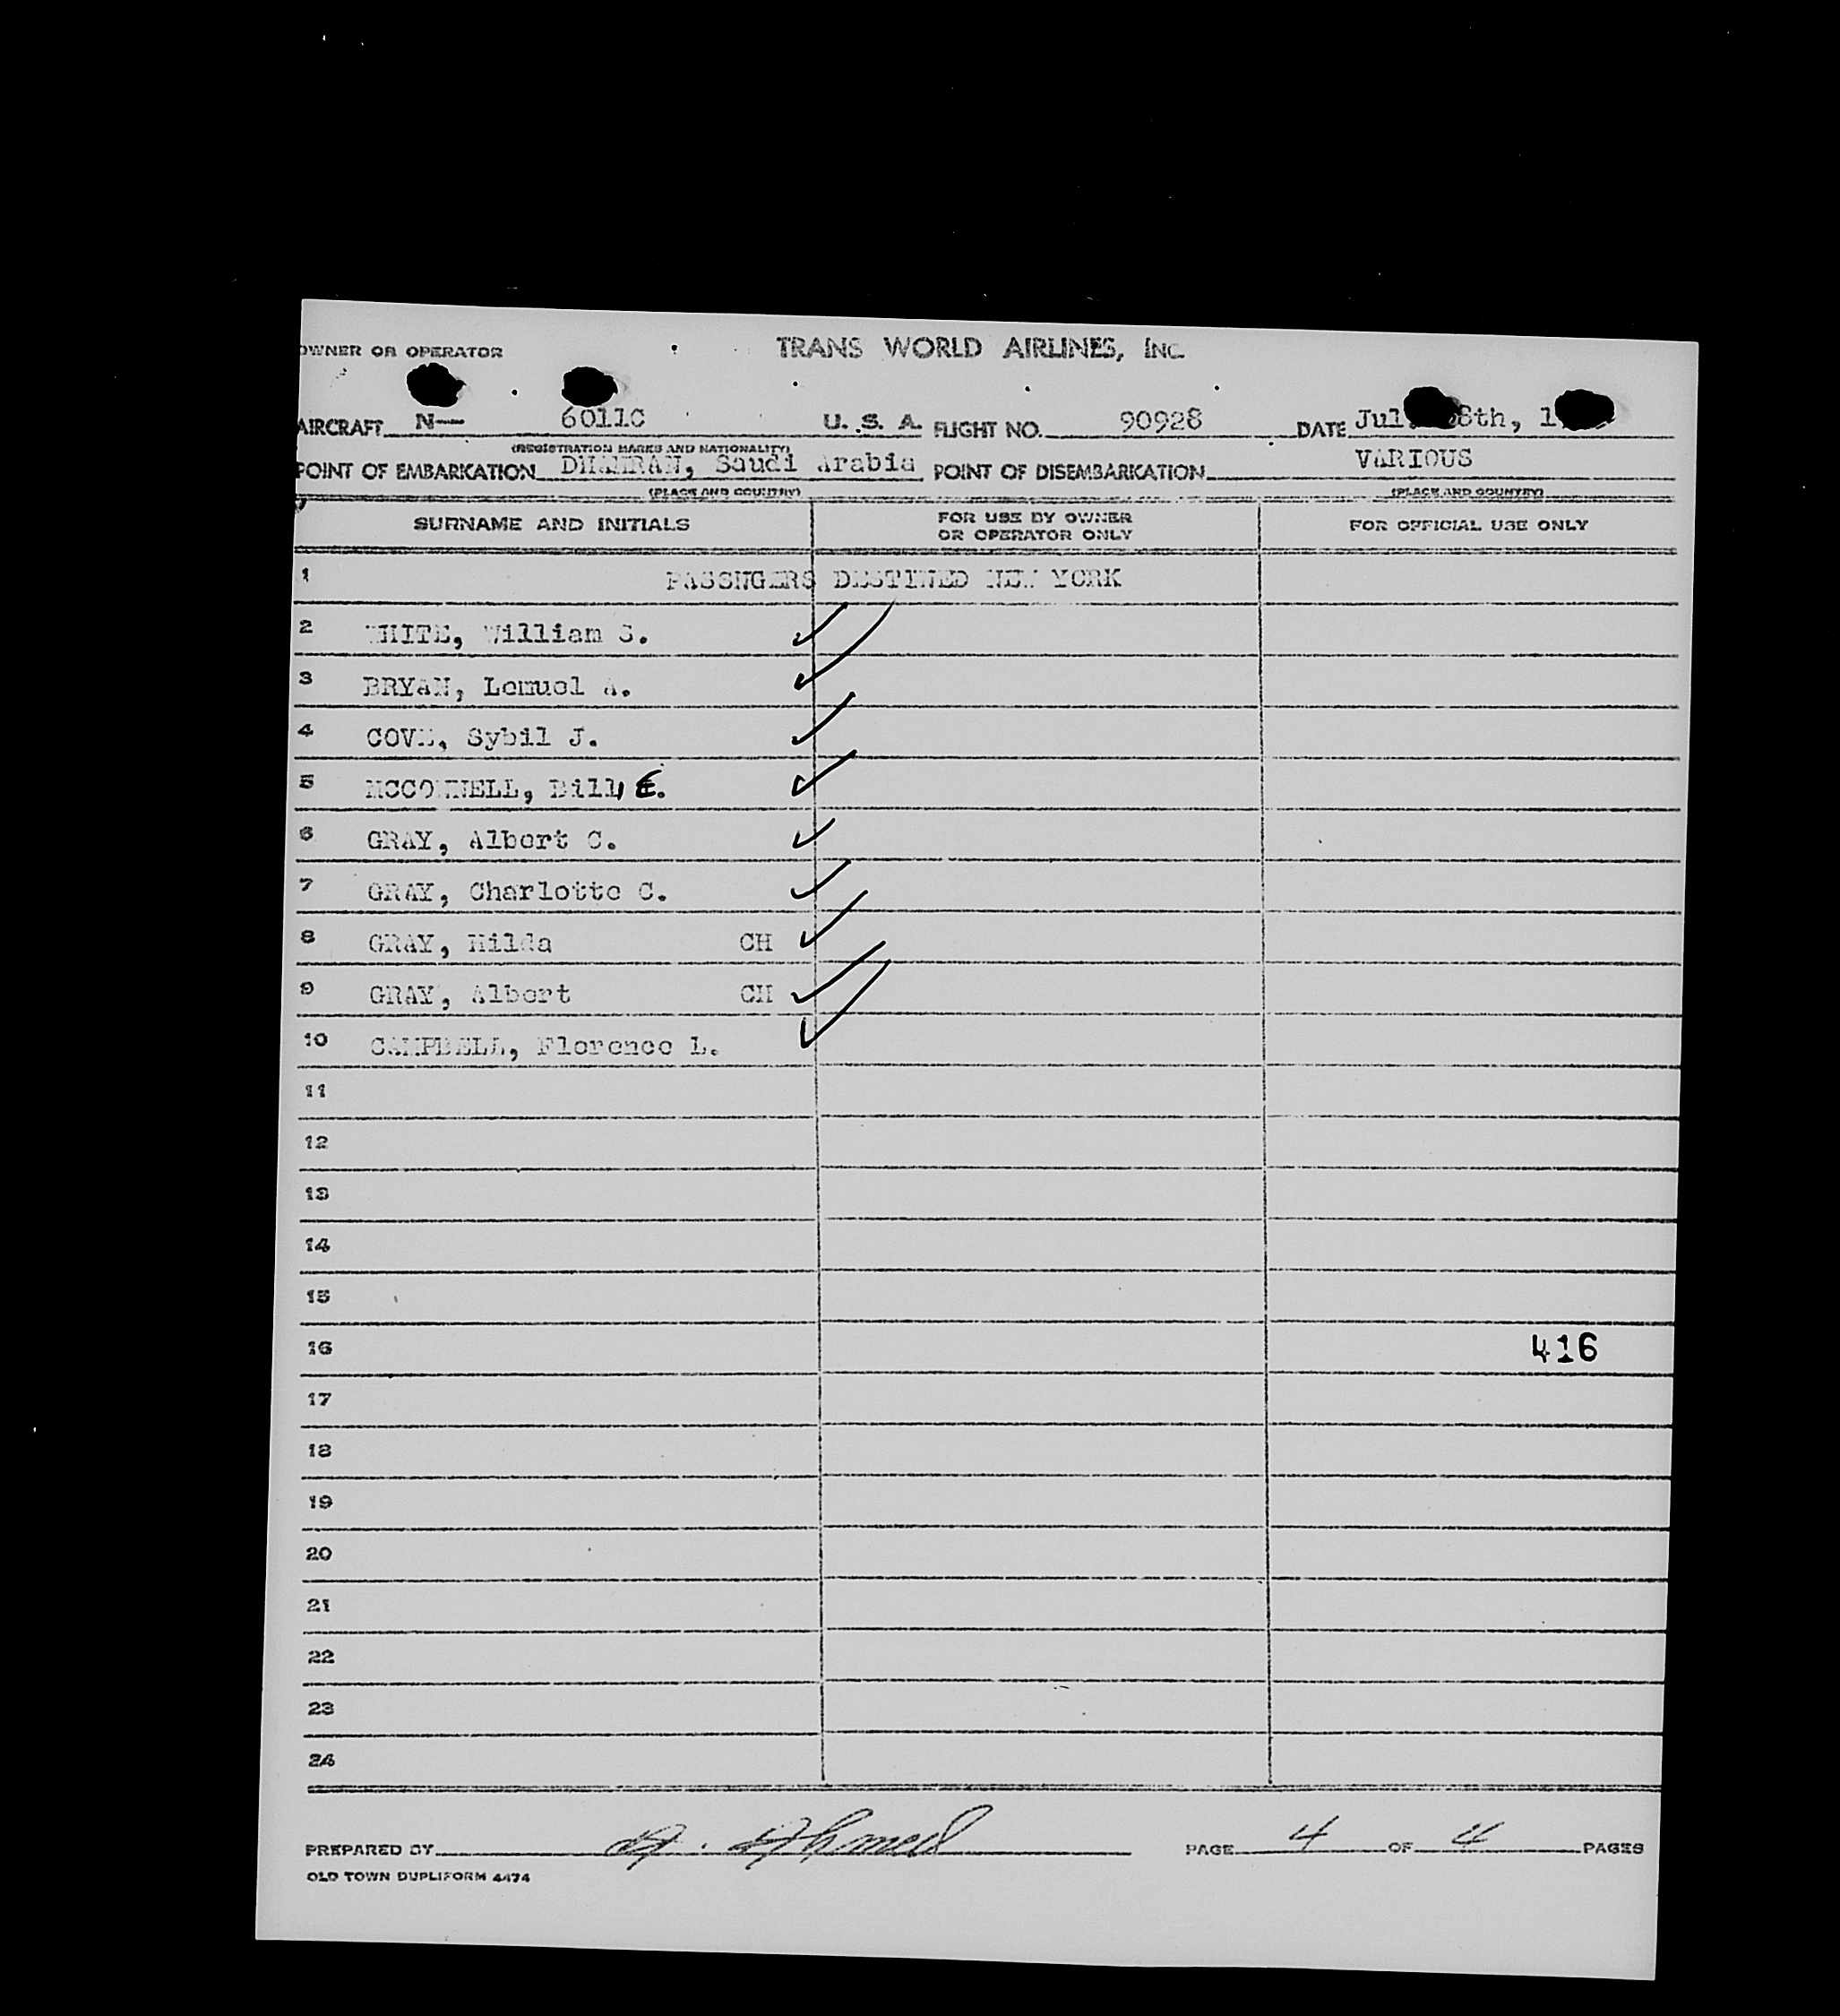 OWNER OR OPERATOR TRANS WORLD AIRLINES, INC.
AIRCRAFT N— 6011C U. S. A. FLIGHT NO. 90928 DATE Jul. 8th, 1
(REGISTRATION MARKS AND NATIONALITY)
POINT OF EMBARKATION DHAHRAN, Saudi Arabia POINT OF DISEMBARKATION VARIOUS
(PLACE AND COUNTRY) (PLACE AND COUNTRY)
SURNAME AND INITIALS FOR USE BY OWNER OR OPERATOR ONLY FOR OFFICIAL USE ONLY
1 PASSNGERS DESTINED NEW YORK
2 WHITE, William S.
3 BRYAN, Lemuel A.
4 COVE, Sybil J.
5 MCCONNELL, Bill E.
6 GRAY, Albert C.
7 GRAY, Charlotte C.
8 GRAY, Hilda CH
9 GRAY, Albert CH
10 CAMPBELL, Florence L.
11
12
13
14
15
16 416
17
18
19
20
21
22
23
24
PREPARED BY A. Ahmed PAGE 4 OF 4 PAGES
OLD TOWN DUPLIFORM 4474